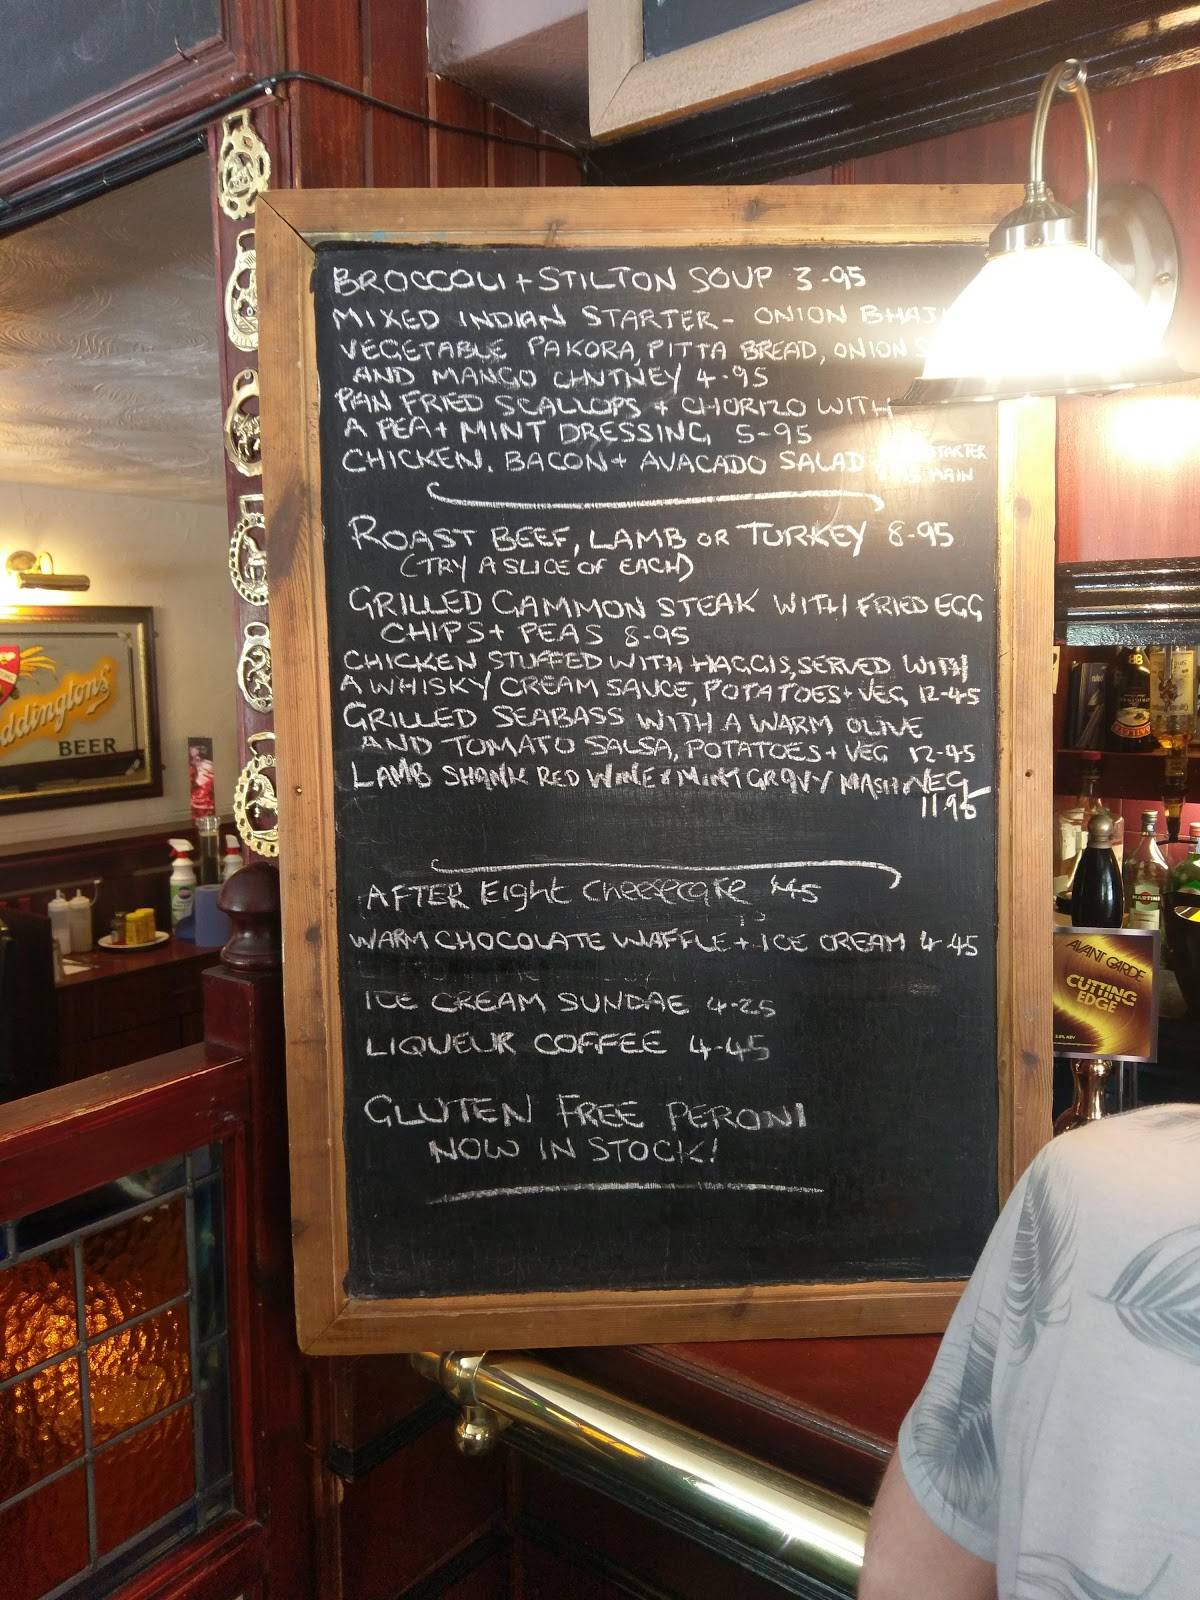 BROCCOLI + STILTON SOUP 3-95
MIXED INDIAN STARTER - ONION
VEGETABLE PAKORA, PITTA BREAD, ONION
AND MANGO CHUTNEY 4-95
PAN FRIED SCALLOPS + CHORIZO WITH
A PEA + MINT DRESSING 5-95
CHICKEN. BACON + AVACADO SALAD
STARTER
MAIN
ROAST BEEF, LAMB OR TURKEY 8-95
(TRY A SLICE OF EACH)
GRILLED GAMMON STEAK WITH FRIED EGG
CHIPS + PEAS 8-95
CHICKEN STUFFED WITH HAGGIS, SERVED WITH
A WHISKY CREAM SAUCE, POTATOES + VEG 12-45
GRILLED SEABASS WITH A WARM OLIVE
AND TOMATO SALSA, POTATOES + VEG 12-45
LAMB SHANK RED WINE + MINT GRAVY MASH VEG
11.95
AFTER Eight Cheesecake
WARM CHOCOLATE WAFFLE + ICE CREAM 4-45
ICE CREAM SUNDAE 4-25
LIQUEUR COFFEE 4-45
GLUTEN FREE PERONI
NOW IN STOCK!
ddingtons
BEER
AVANT GARDE
CUTTING
EDGE
MARTINI